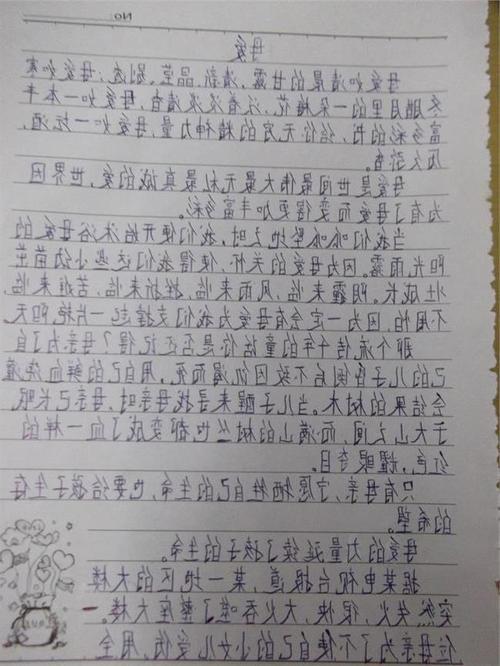 No
母爱
母爱如清晨的甘露,清新,晶莹,剔透;母爱如寒
冬腊月里的一朵梅花,沉香淡淡清香,母爱如一本丰
富多彩的书,给你无穷的精神力量,母爱如一坛酒,
历久弥香。
母爱是世间最伟大最无私最真诚的爱,世界因
为有了母爱而变得更加丰富多彩。
当我们呱呱坠地之时,我们便开始沐浴母爱的
阳光雨露。因为母爱的关怀,使得我们这些幼小的苗茁
壮成长。阴霾来临,风雨来临,挫折来临,苦难来临,
不用怕,因为一定会有母爱为我们支撑起一片艳阳天
那个流传千年的童话你是否还记得?母亲为了自
己的儿子不致因饥渴而死,用自己的鲜血浇灌
会结果的树木。当儿子醒来寻找母亲时,母亲已长眠
于大山之间,而满山的树的丝也都变成了血一样的
红色,耀眼夺目。
只有母亲,宁愿牺牲自己的生命,也要给孩子生存
的希望。
母爱的力量延续了孩子的生命。
据某电视台报道,某一地区的大楼
突然失火,很快,大火吞噬了整座大楼。
位母亲为了不使自己的小女儿受伤,用全